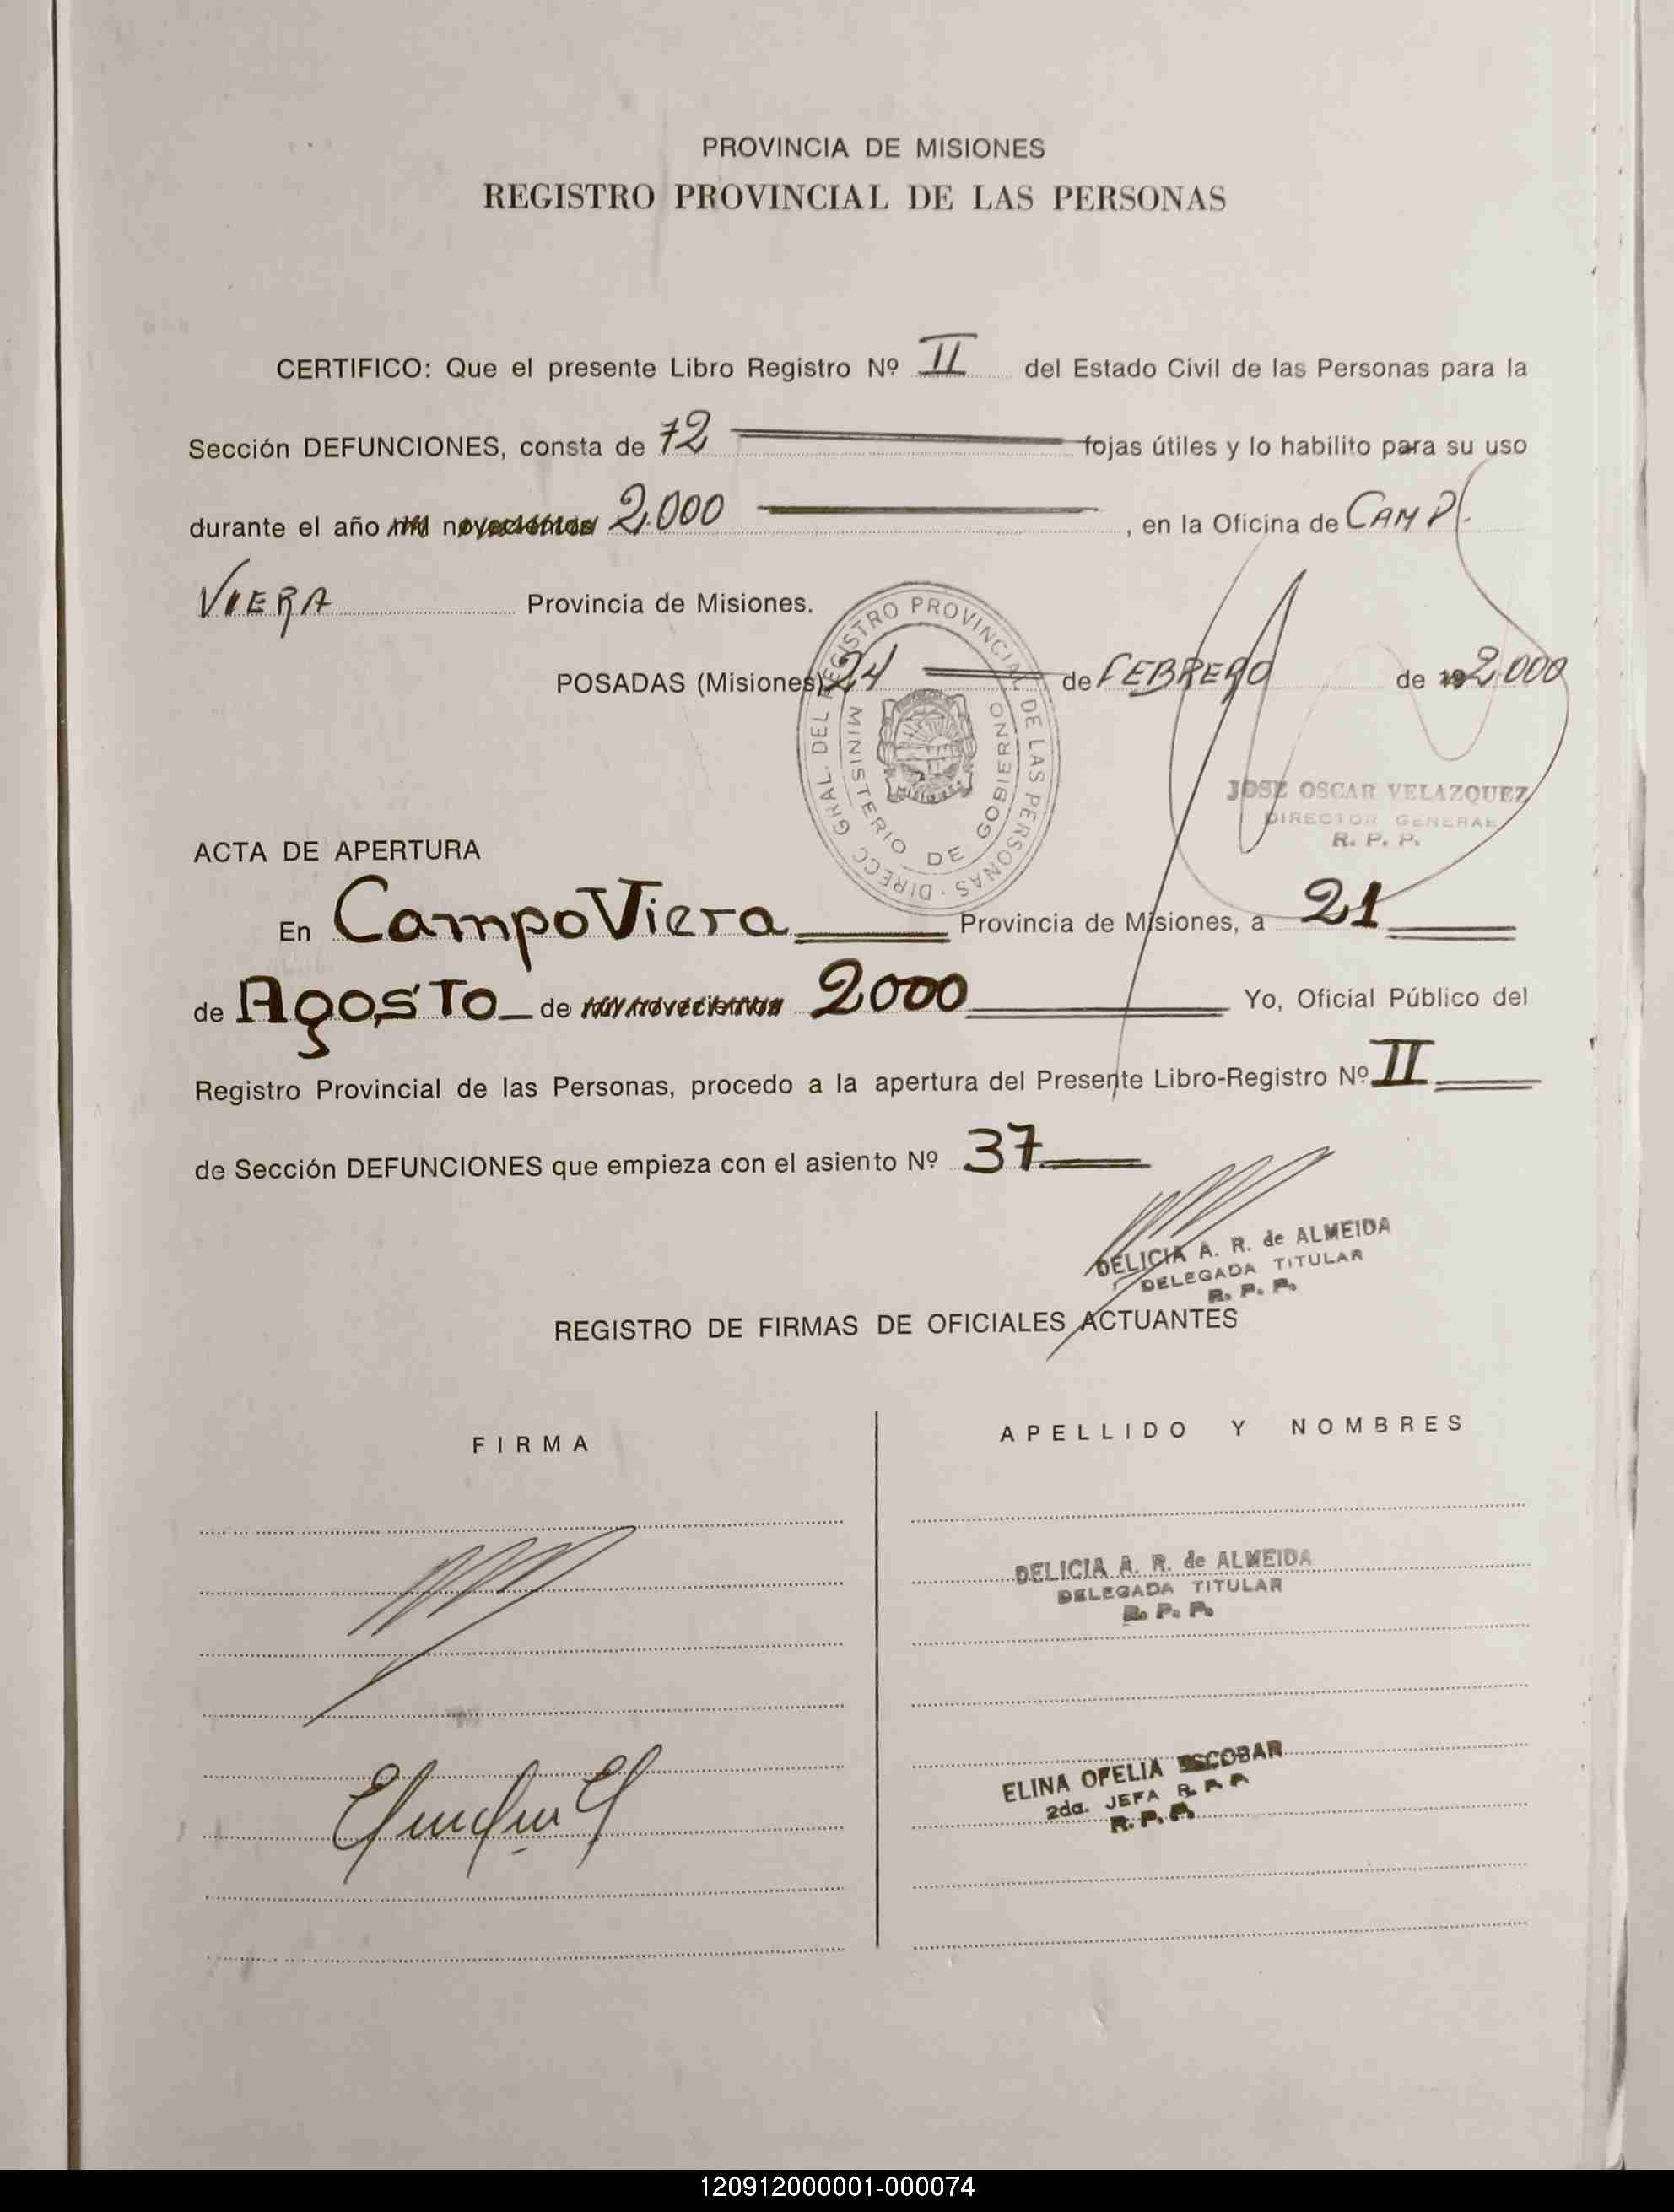 PROVINCIA DE MISIONES
REGISTRO PROVINCIAL DE LAS PERSONAS
CERTIFICO: Que el presente Libro Registro Nº II del Estado Civil de las Personas para la
Sección DEFUNCIONES, consta de 72 fojas útiles y lo habilito para su uso
durante el año mil novecientos 2.000, en la Oficina de CAMPO
VIERA Provincia de Misiones.
POSADAS (Misiones), 24 de FEBRERO de 19 2.000
DIRECC. GRAL. DEL REGISTRO PROVINCIAL DE LAS PERSONAS
MINISTERIO DE GOBIERNO
MISIONES
JOSE OSCAR VELAZQUEZ
DIRECTOR GENERAL
R. P. P.
ACTA DE APERTURA
En Campo Viera Provincia de Misiones, a 21
de Agosto de mil novecientos 2000 Yo, Oficial Público del
Registro Provincial de las Personas, procedo a la apertura del Presente Libro-Registro Nº II
de Sección DEFUNCIONES que empieza con el asiento Nº 37
DELICIA A. R. de ALMEIDA
DELEGADA TITULAR
R. P. P.
REGISTRO DE FIRMAS DE OFICIALES ACTUANTES
FIRMA APELLIDO Y NOMBRES
DELICIA A. R. de ALMEIDA
DELEGADA TITULAR
R. P. P.
ELINA OFELIA ESCOBAR
2da. JEFA R. P. P.
R. P. P.
120912000001-000074